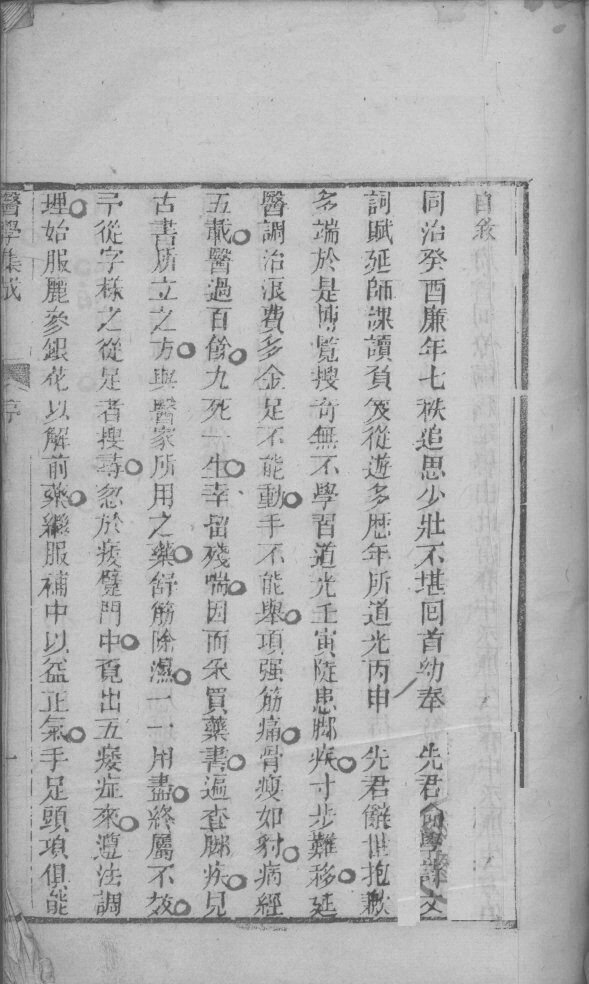 自敘
同治癸酉廉年七秩追思少壯不堪回首幼奉　先君命學詩文
詞賦延師課讀負笈從遊多歷年所道光丙申　先君辭世抱歉
多端於是博覧搜奇無不學習道光壬寅陡患脚疾寸步難移延
醫調治浪費多金足不能動手不能舉項强筋痛骨瘦如豺病經
五載醫過百僚九死一生幸留殘喘因而釆買藥書遍查脚疾凡
古書所立之方與醫家所用之藥舒筋除濕一一用盡終屬不效
予從字㨾之從足者搜尋忽於痿躄門中覔出五痿症來遵法調
理始服麗參銀花以解前藥繼服補中以益正氣手足頭項俱能
醫學集成
序
一